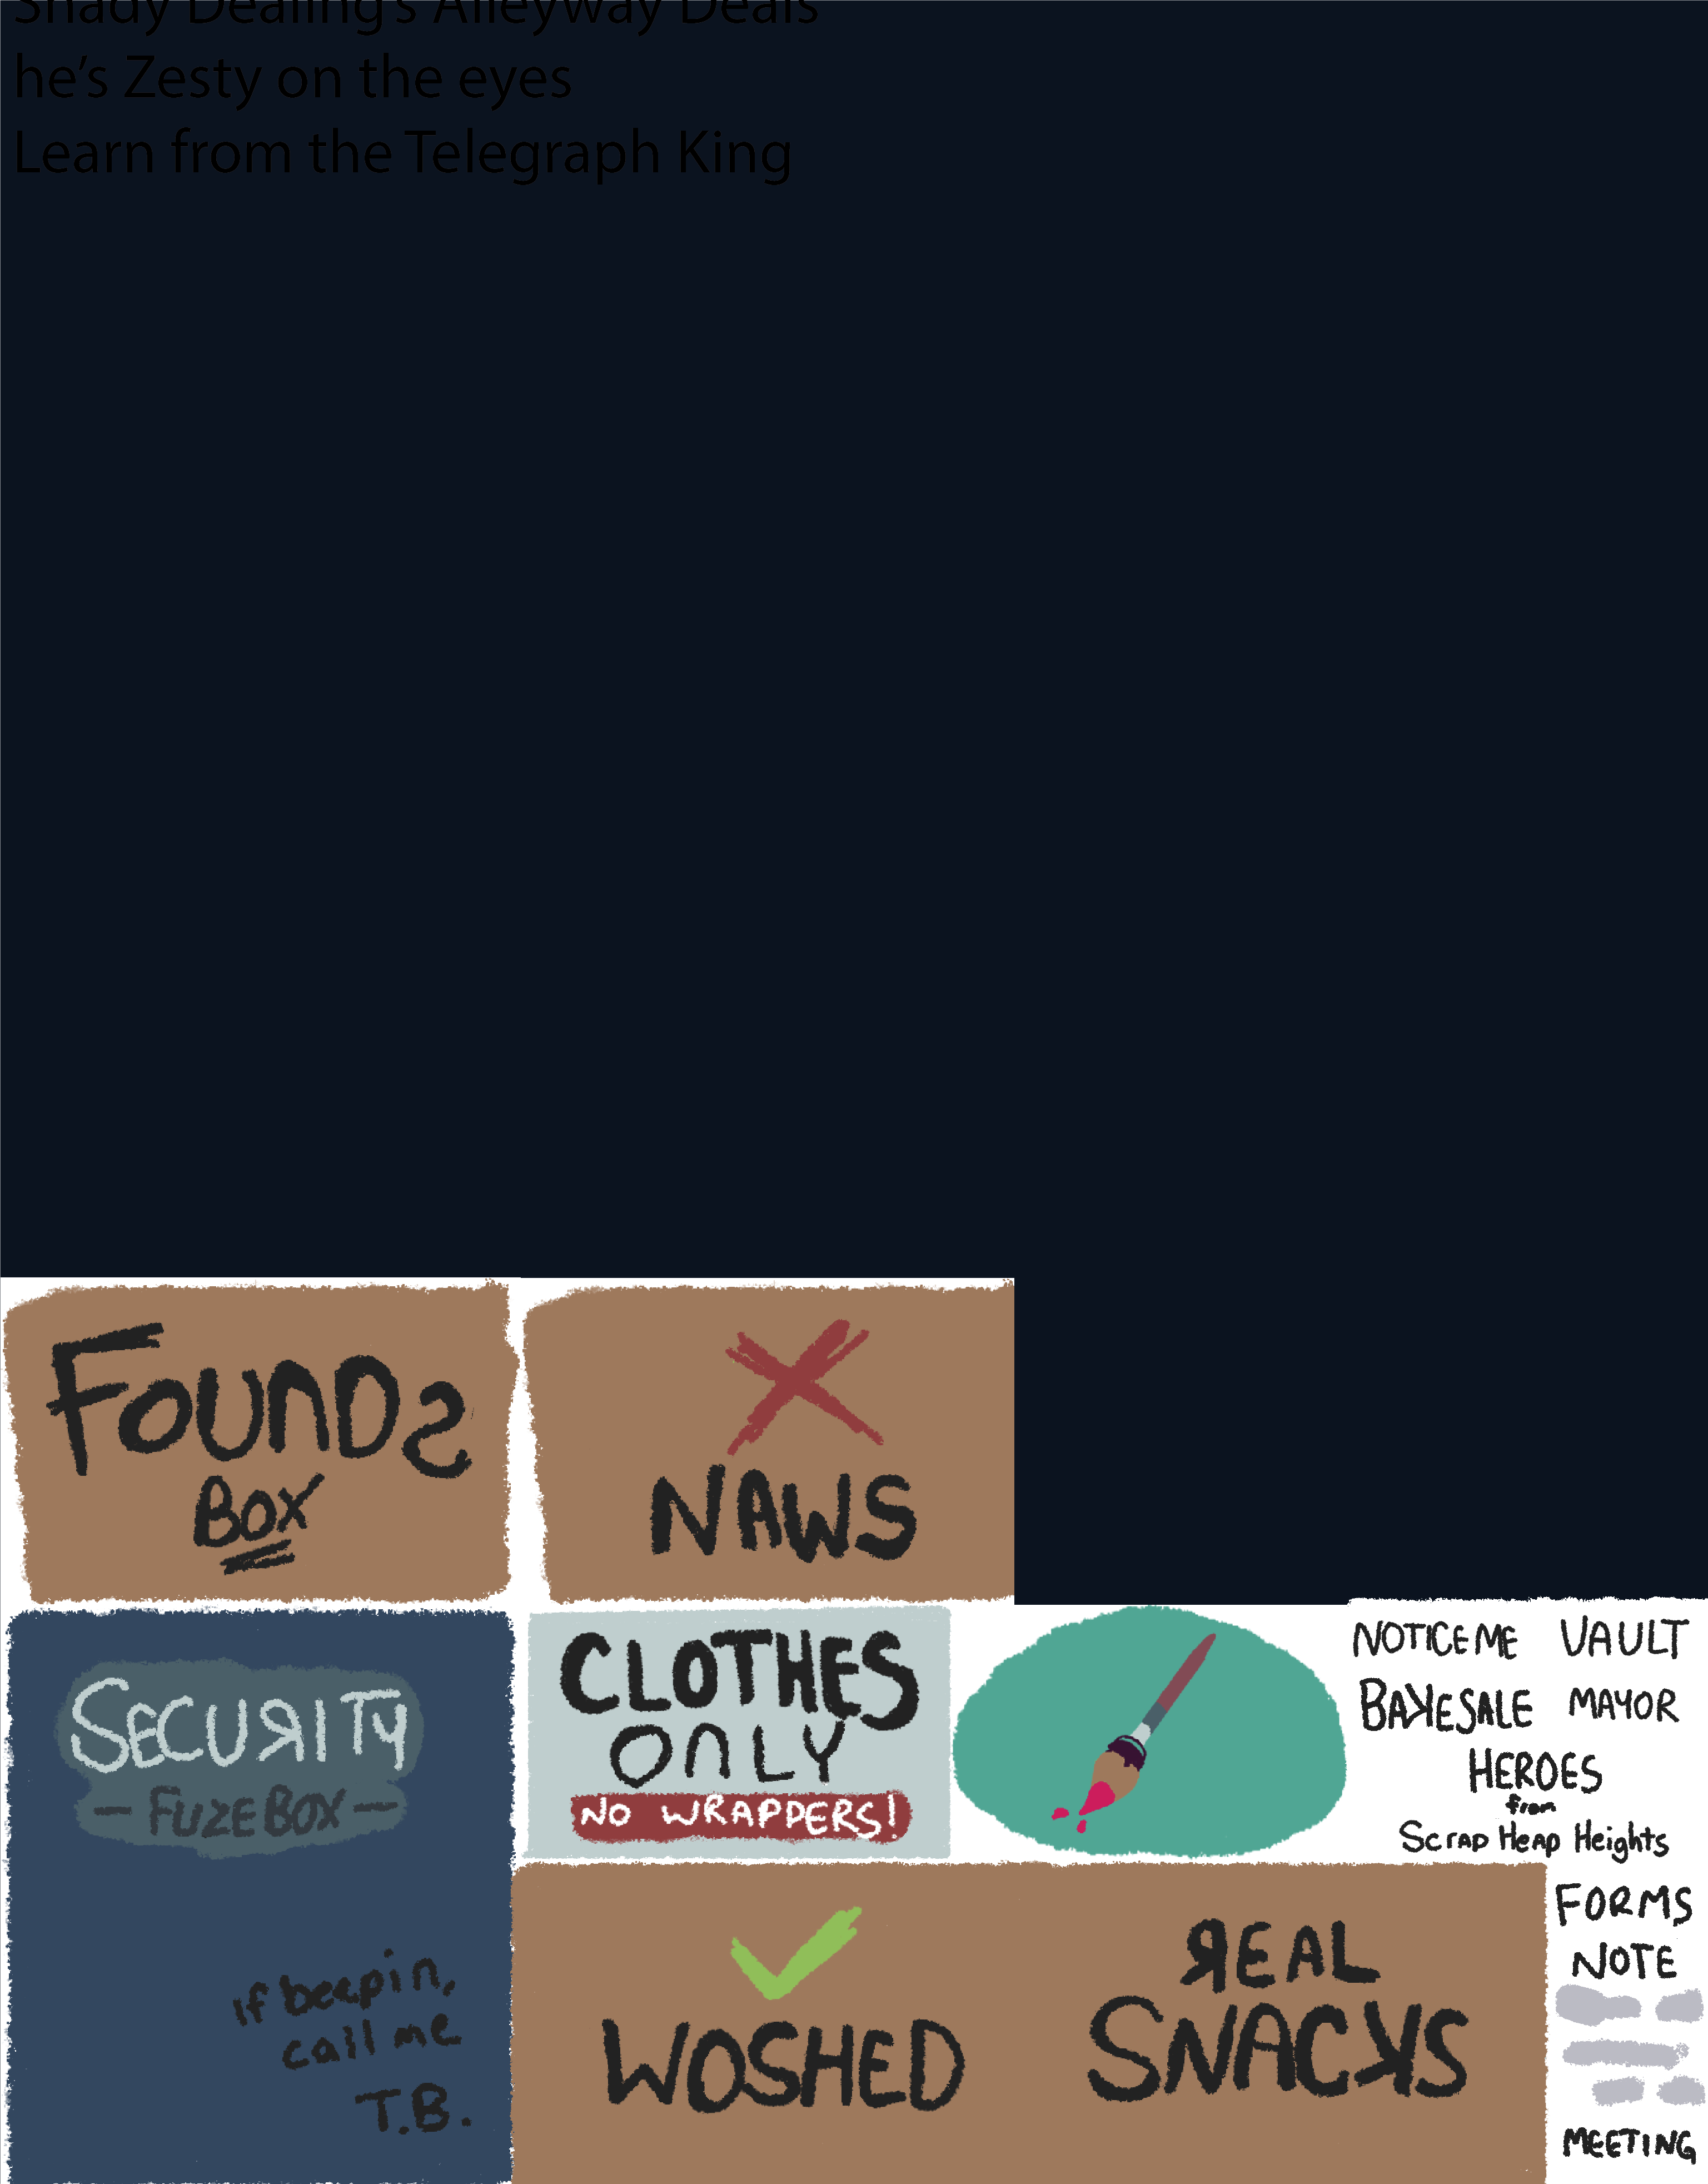 Shady Dealing's Alleyway Deals
he's Zesty on the eyes
Learn from the Telegraph King
FOUNDS
BOX
NAWS
SECURITY
- FUZEBOX -
if beepin,
call me
T.B.
CLOTHES
ONLY
NO WRAPPERS!
NOTICE ME VAULT
BAKESALE MAYOR
HEROES
from
Scrap Heap Heights
FORMS
NOTE
MEETING
WOSHED
REAL
SNACKS